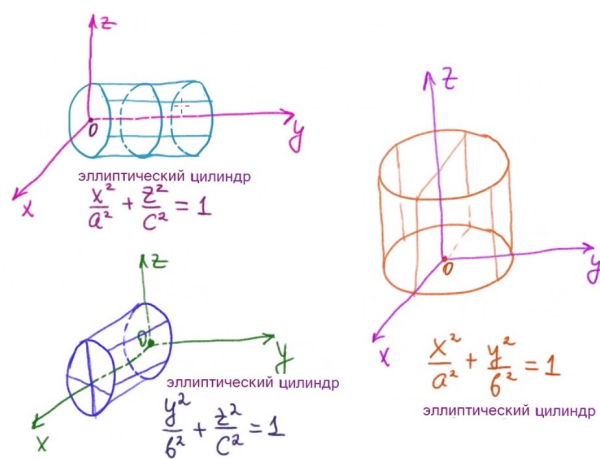 z
O
y
x
эллиптический цилиндр
x²/a² + z²/c² = 1
z
O
y
x
эллиптический цилиндр
y²/b² + z²/c² = 1
z
O
y
x
x²/a² + y²/b² = 1
эллиптический цилиндр